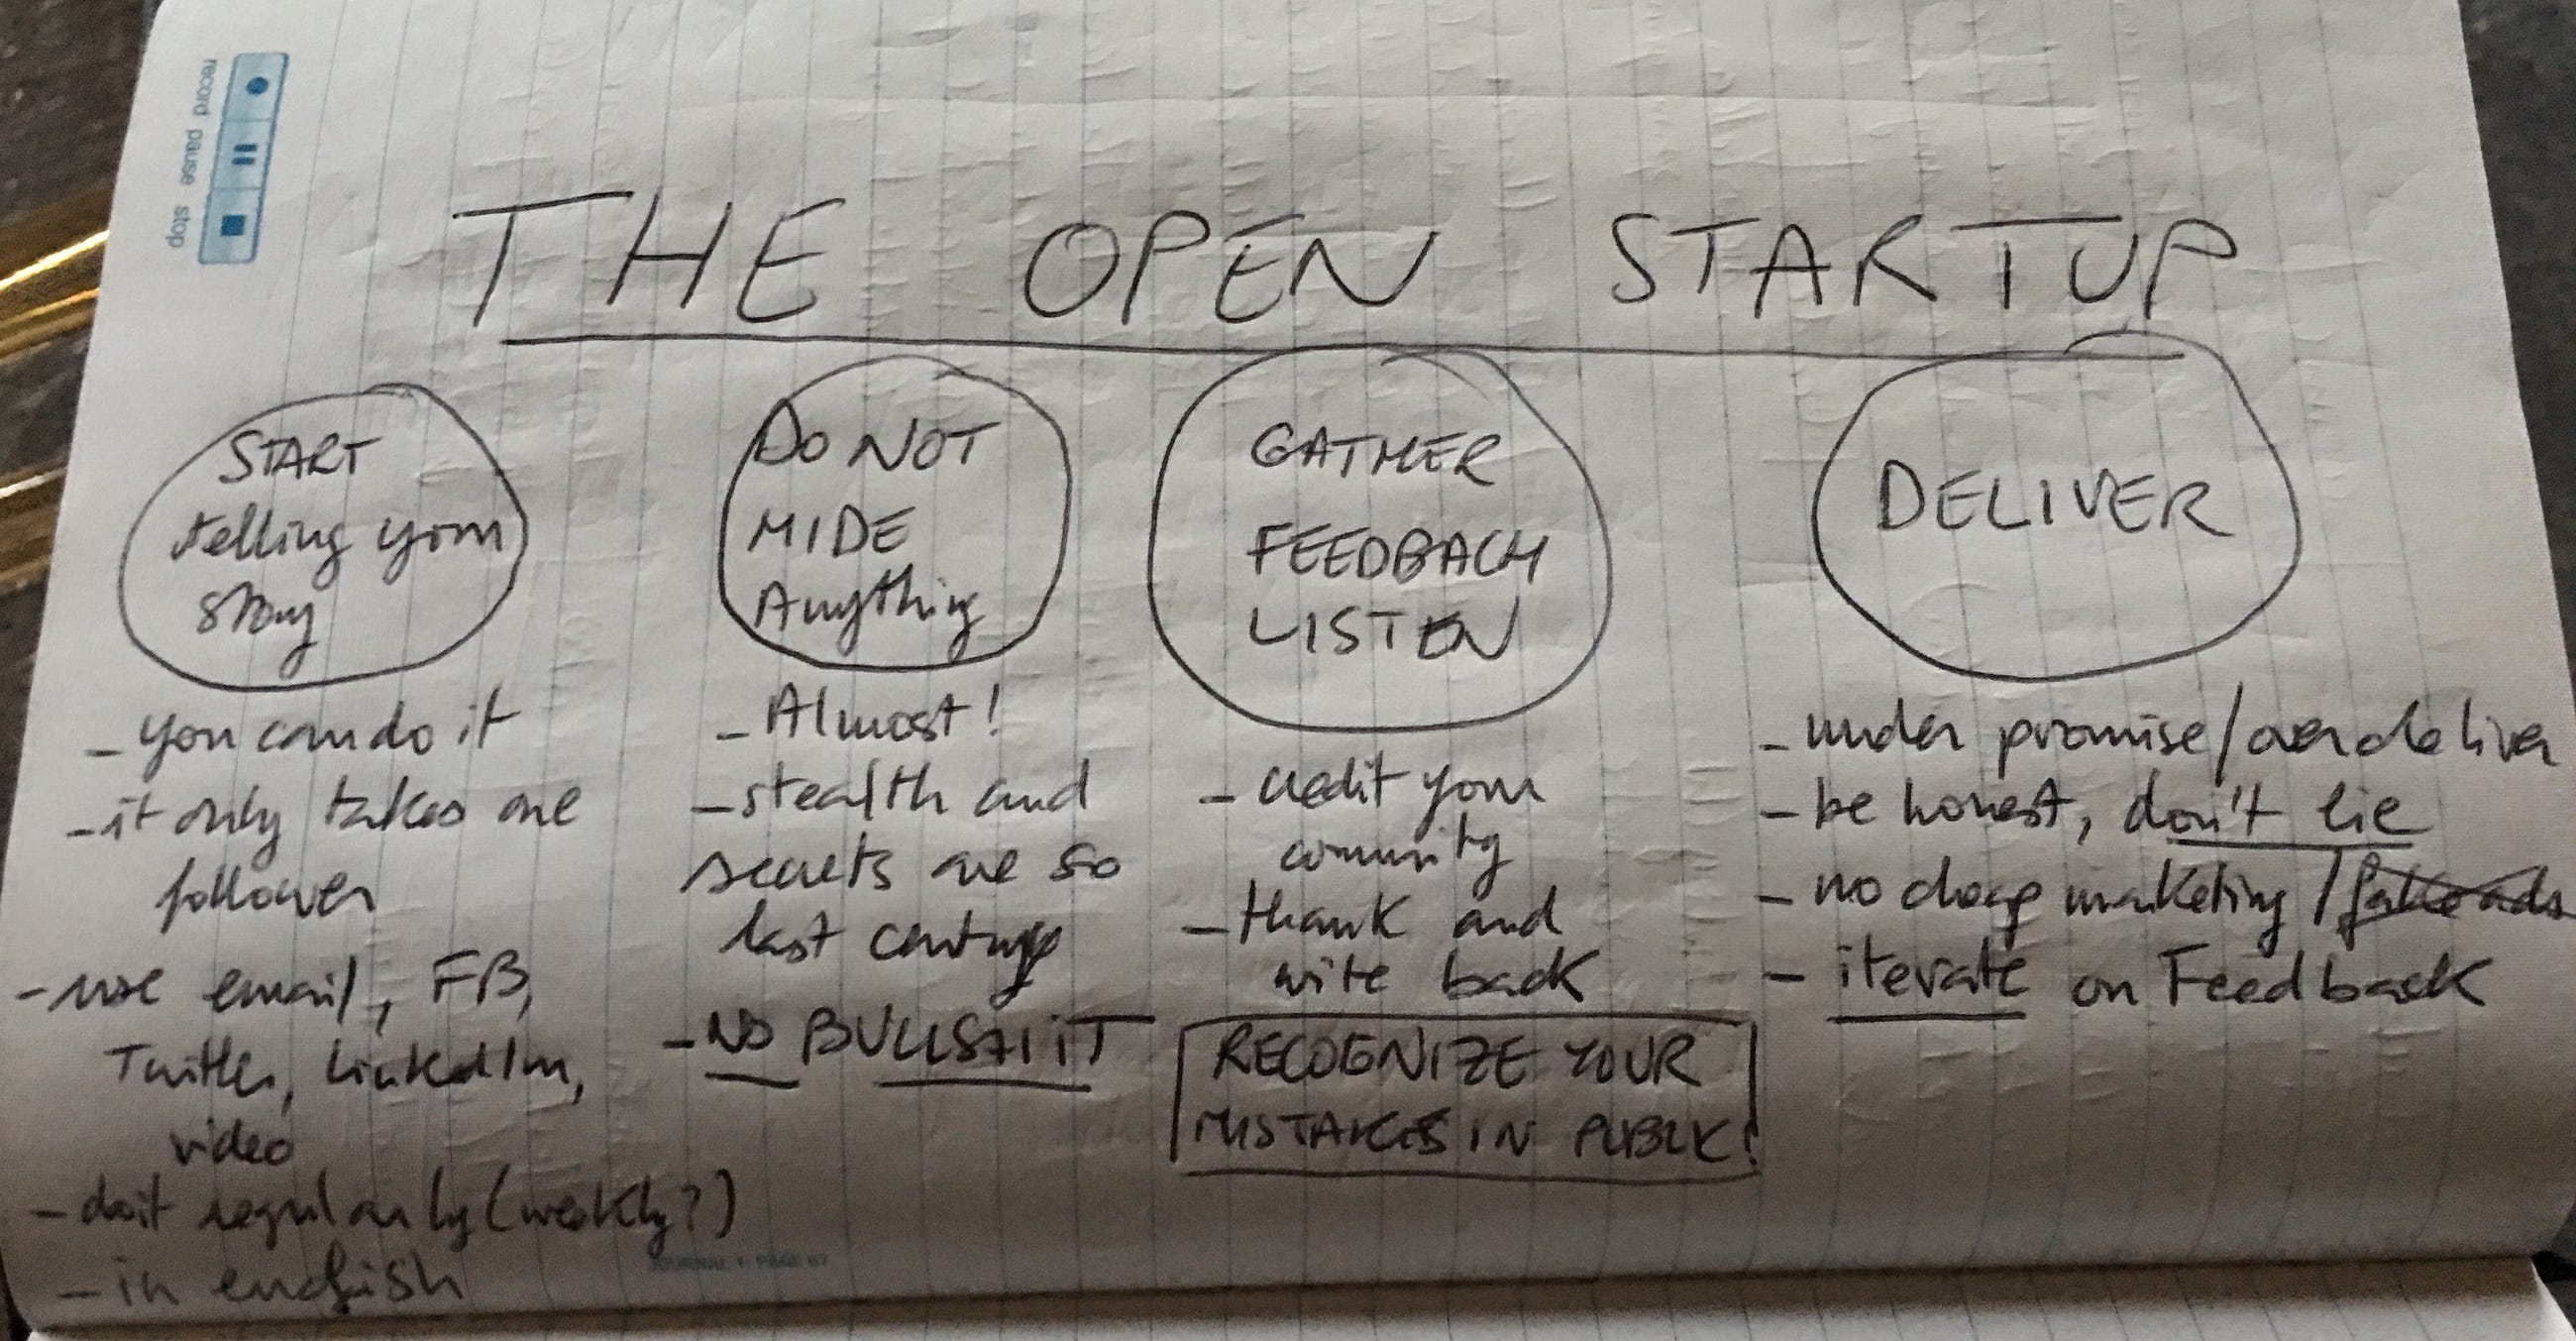 record pause stop
THE OPEN STARTUP
START
telling your
story
- you can do it
- it only takes one
follower
- use email, FB,
Twitter, LinkedIn,
video
- do it regularly (weekly?)
- in english
DO NOT
HIDE
Anything
- Almost!
- stealth and
secrets are so
last century
- NO BULLSHIT
GATHER
FEEDBACK
LISTEN
- credit your
comunity
- thank and
write back
RECOGNIZE YOUR
MISTAKES IN PUBLIC!
DELIVER
- under promise/over deliver
- be honest, don't lie
- no cheap marketing / fake ads
- iterate on Feedback
JOURNAL 1: PAGE 67